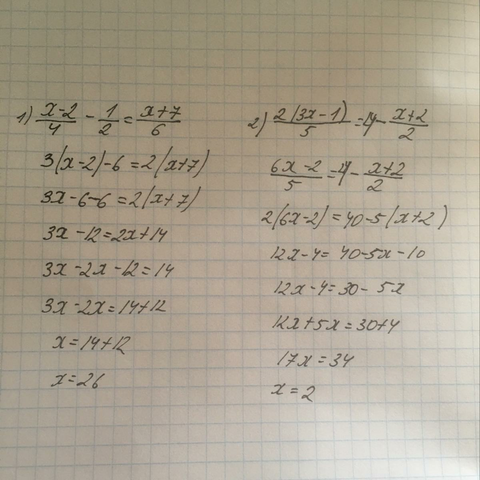 1) (x-2)/4 - 1/2 = (x+7)/6
3(x-2)-6=2(x+7)
3x-6-6=2(x+7)
3x-12=2x+14
3x-2x-12=14
3x-2x=14+12
x=14+12
x=26
2) 2(3x-1)/5 = 4 - (x+2)/2
(6x-2)/5 = 4 - (x+2)/2
2(6x-2)=40-5(x+2)
12x-4=40-5x-10
12x-4=30-5x
12x+5x=30+4
17x=34
x=2